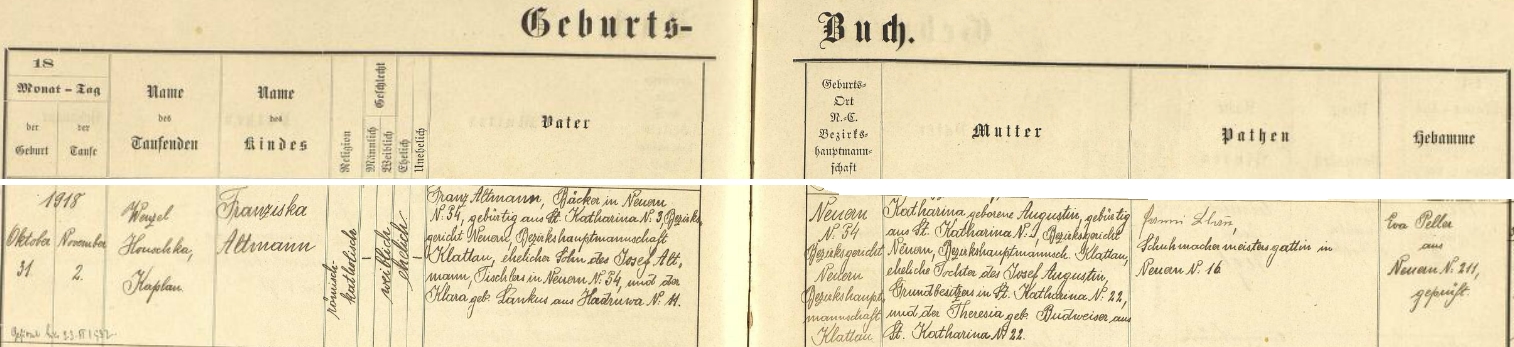 Geburts-
Buch.
18
Monat - Tag
der Geburt
der Taufe
Name
des
Taufenden
Name
des
Kindes
Religion
Geschlecht
Männlich
Weiblich
Ehelich
Unehelich
Vater
Geburts-
Ort
N.-C.
Bezirks-
hauptmann-
schaft
Mutter
Pathen
Hebamme
1918
Oktober
31
November
2.
Wenzel
Kaplan
Franziska
Altmann
römisch-
katholisch
weiblich
ehelich
Franz Altmann, Bäcker in Neuern
N. 54, gebürtig aus St. Katharina N. 3, Bezirks-
gericht Neuern, Bezirkshauptmannschaft
Klattau, ehelicher Sohn des Josef Alt-
mann, Tischlers in Neuern N. 54, und der
Klara geb. aus N. 11.
Neuern
N. 54
Bezirksgericht
Neuern
Bezirkshaupt-
mannschaft
Klattau
Katharina, geborene Augustin, gebürtig
aus St. Katharina N. Bezirksgericht
Neuern, Bezirkshauptmannsch. Klattau,
eheliche Tochter des Josef Augustin,
Grundbesitzers in St. Katharina N. 22,
und der Theresia geb. Budweiser aus
St. Katharina N. 22.
Schuhmachermeistersgattin in
Neuern N. 16
Eva Peller
aus
Neuern N. 211,
geprüft.